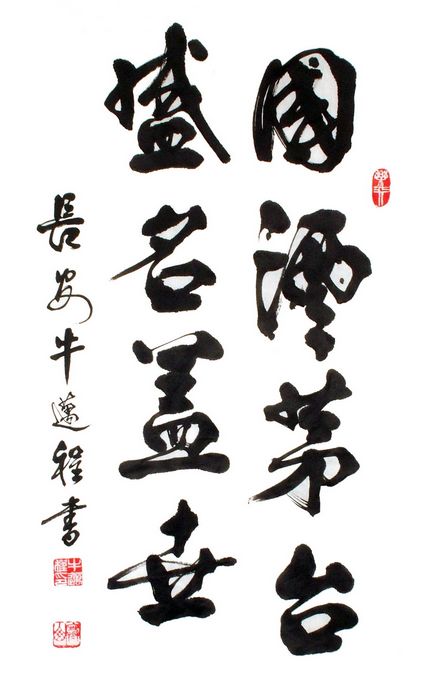 國酒茅台
盛名盖世
長安牛邁程書